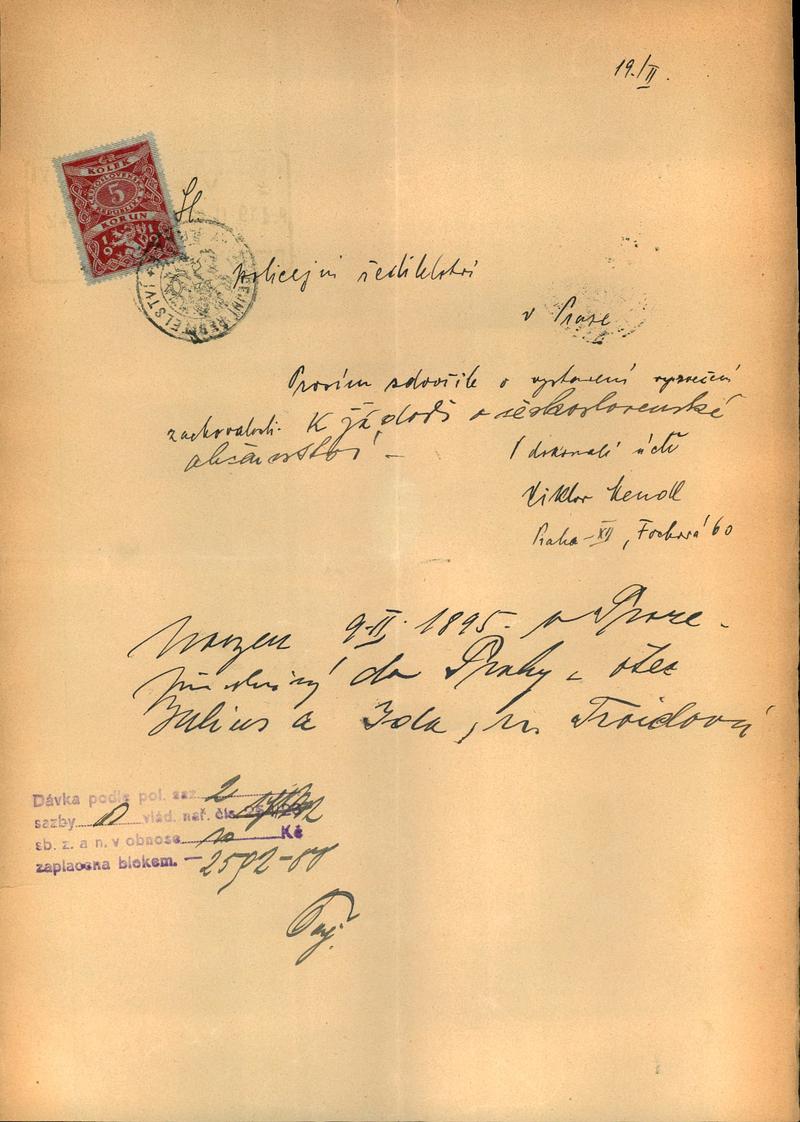 19./II.
KOLEK
ČESKOSLOVENSKÁ
5
REPUBLIKA
KORUN
1919
Sl.
policejní ředitelství
v Praze
Prosím zdvořile o vystavení vysvědčení
zachovalosti. K žádosti o československé
občanství. —
V dokonalé úctě
Viktor Mendl
Praha - XII, Fochová 60
Narozen 9.II. 1895. v Praze -
příslušný do Prahy - otec
Julius a Ida, r.
Dávka podle pol. saz. 2
sazby vlád. nař. čís.
sb. z. a n. v obnose 10 Kč
zaplacena blokem. —